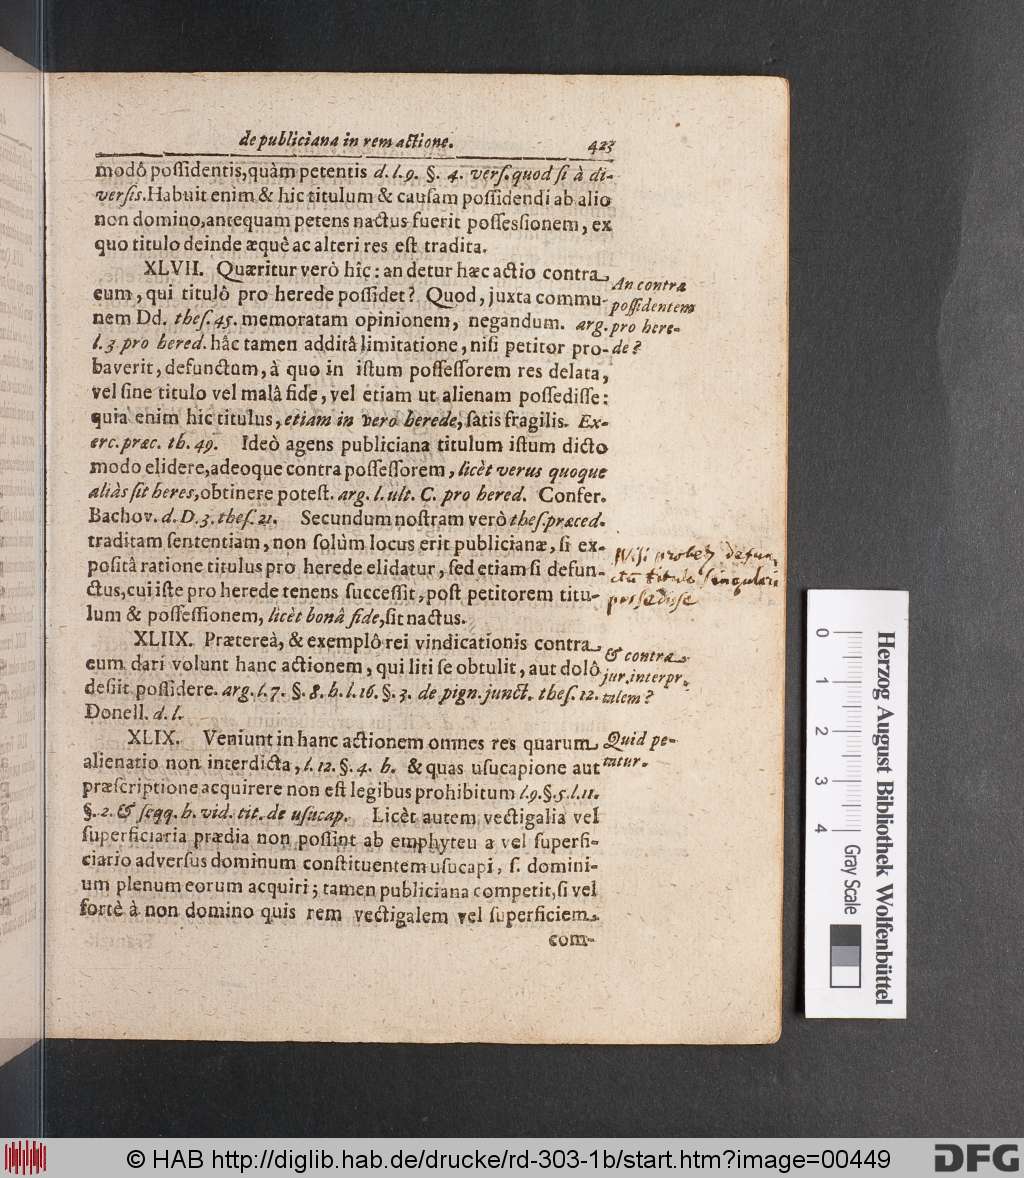 de publiciana in rem actione. 423
modô possidentis, quàm petentis d. l. 9. §. 4. vers. quod si à di-
versis. Habuit enim & hic titulum & causam possidendi ab alio
non domino, antequam petens nactus fuerit possessionem, ex
quo titulo deinde æquè ac alteri res est tradita.
XLVII. Quæritur verò hîc: an detur hæc actio contra
eum, qui titulô pro herede possidet? Quod, juxta commu-
nem Dd. thes. 45. memoratam opinionem, negandum. arg.
l. 3 pro hered. hâc tamen additâ limitatione, nisi petitor pro-
baverit, defunctum, à quo in istum possessorem res delata,
vel sine titulo vel malâ fide, vel etiam ut alienam possedisse:
quia enim hic titulus, etiam in vero herede, satis fragilis. Ex-
erc. præc. th. 49. Ideò agens publiciana titulum istum dicto
modo elidere, adeoque contra possessorem, licèt verus quoque
aliàs sit heres, obtinere potest. arg. l. ult. C. pro hered. Confer.
Bachov. d. D. 3. thes. 21. Secundum nostram verò thes. præced.
traditam sententiam, non solùm locus erit publicianæ, si ex-
positâ ratione titulus pro herede elidatur, sed etiam si defun-
ctus, cui iste pro herede tenens successit, post petitorem titu-
lum & possessionem, licèt bonâ fide, sit nactus.
XLIIX. Prætereà, & exemplô rei vindicationis contra
eum dari volunt hanc actionem, qui liti se obtulit, aut dolô
desiit possidere. arg. l. 7. §. 8. h. l. 16. §. 3. de pign. junct. thes. 12.
Donell. d. l.
XLIX. Veniunt in hanc actionem omnes res quarum
alienatio non interdicta, l. 12. §. 4. h. & quas usucapione aut
præscriptione acquirere non est legibus prohibitum l. 9. §. 5. l. 11.
§. 2. & seqq. h. vid. tit. de usucap. Licèt autem vectigalia vel
superficiaria prædia non possint ab emphyteu a vel superfi-
ciario adversus dominum constituentem usucapi, s. domini-
um plenum eorum acquiri; tamen publiciana competit, si vel
fortè à non domino quis rem vectigalem vel superficiem
com-
An contra
possidentem
pro here-
de?
Nisi probet defun
ctū titulo singulari
possedisse
& contra
jur. interpr.
talem?
Quid pe-
tatur.
0 1 2 3 4
Gray Scale
Herzog August Bibliothek Wolfenbüttel
© HAB http://diglib.hab.de/drucke/rd-303-1b/start.htm?image=00449
DFG